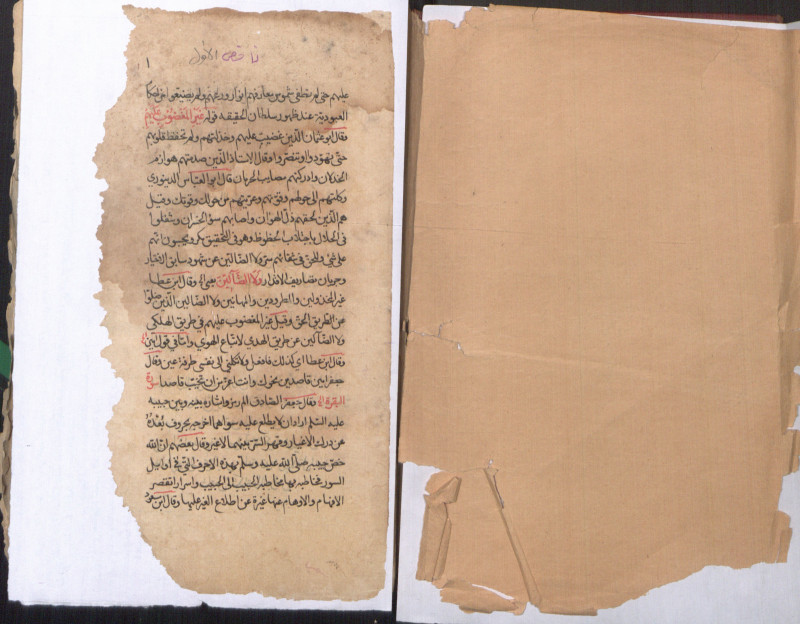 ناقص الأول
١
عليهم حتى لم يطفى شموس معارفهم انوار ورعهم ولم يضيعوا احكام
العبودية عند ظهور سلطان الحقيقة قوله غير المغضوب عليهم
وقال ابو عثمان الذين غضبت عليهم وخذلتهم ولم تحفظ قلوبهم
حتى تهودوا او تنصروا وقال الاستاذ الذين صدمتهم هوازم
الخذلان وادركتهم مصايب الحرمان قال ابو العباس الدينوري
وكلتهم الى حولهم وقوتهم وعريتهم من حولك وقوتك وقيل
هم الذين لحقهم ذل الهوان واصابهم سوء الخسران وشغلوا
في الحال باجتلاب الحظوظ وهو في التحقيق مكر ويحسبون انهم
على شي وللحق في شقائهم سر ولا الضالين عن شهود سابق الاختيار
وجريان تصاريف الاقدار ولا الضالين وقال ابن عطا
غير المخذولين والمطرودين والمهانين ولا الضالين الذين ضلوا
عن الطريق الحق وقيل غير المغضوب عليهم في طريق الهلكى
ولا الضالين عن طريق الهدى لاتباع الهوى واما في قول امين
وقال ابن عطا اي كذلك فافعل ولا تكلني الى نفسي طرفة عين وقال
جعفر امين قاصدين نحوك وانت اعز من ان تخيب قاصدا سورة
البقرة الم وقال جعفر الصادق الم رمز واشارة بينه وبين حبيبه
عليه السلم اراد ان لا يطلع عليه سواهما اخرجه بحروف بعده
عن درك الاغيار وظهر السر بينهما لا غير وقال بعضهم ان الله
خص حبيبه صلى الله عليه وسلم بهذه الاحرف التي في اوايل
السور مخاطبة بها مخاطبة الحبيب الى الحبيب واسرار تقصر
الافهام والاوهام عنها غيرة عن اطلاع الغير عليها وقال ابن مسعود